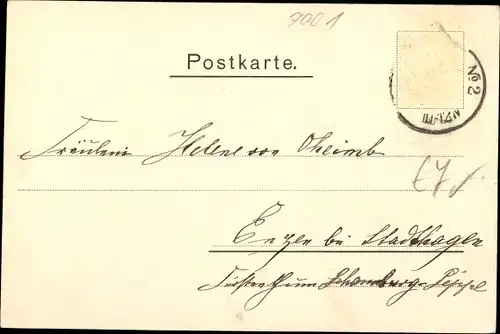 7001
Postkarte.
No 2
Fräulein Helene von Oheimb
Enzen bei Stadthagen
Fürstenthum Schaumburg-Lippe